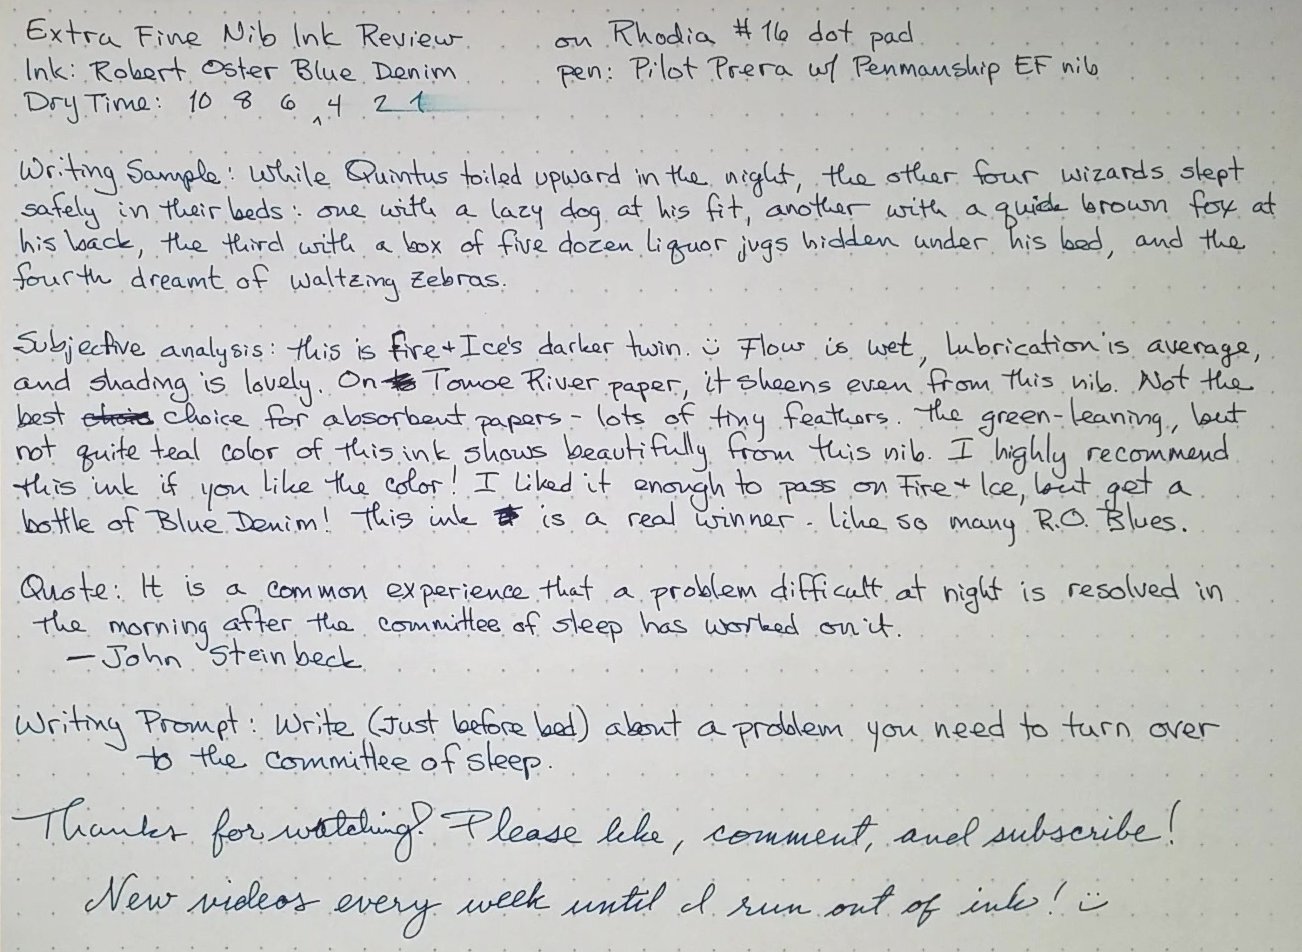 Extra Fine Nib Ink Review on Rhodia #16 dot pad
Ink: Robert Oster Blue Denim pen: Pilot Prera w/ Penmanship EF nib
Dry Time: 10 8 6 ^ 4 2 1
Writing Sample: While Quintus toiled upward in the night, the other four wizards slept
safely in their beds: one with a lazy dog at his fit, another with a quick brown fox at
his back, the third with a box of five dozen liquor jugs hidden under his bed, and the
fourth dreamt of waltzing zebras.
Subjective analysis: this is Fire + Ice's darker twin. :) Flow is wet, lubrication is average,
and shading is lovely. On Tomoe River paper, it sheens even from this nib. Not the
best choice for absorbent papers - lots of tiny feathers. The green-leaning, but
not quite teal color of this ink shows beautifully from this nib. I highly recommend
this ink if you like the color! I liked it enough to pass on Fire + Ice, but get a
bottle of Blue Denim! This ink is a real winner - like so many R.O. Blues.
Quote: It is a common experience that a problem difficult at night is resolved in
the morning after the committee of sleep has worked on it.
— John Steinbeck
Writing Prompt: Write (just before bed) about a problem you need to turn over
to the committee of sleep.
Thanks for watching! Please like, comment, and subscribe!
New videos every week until I run out of ink! :)